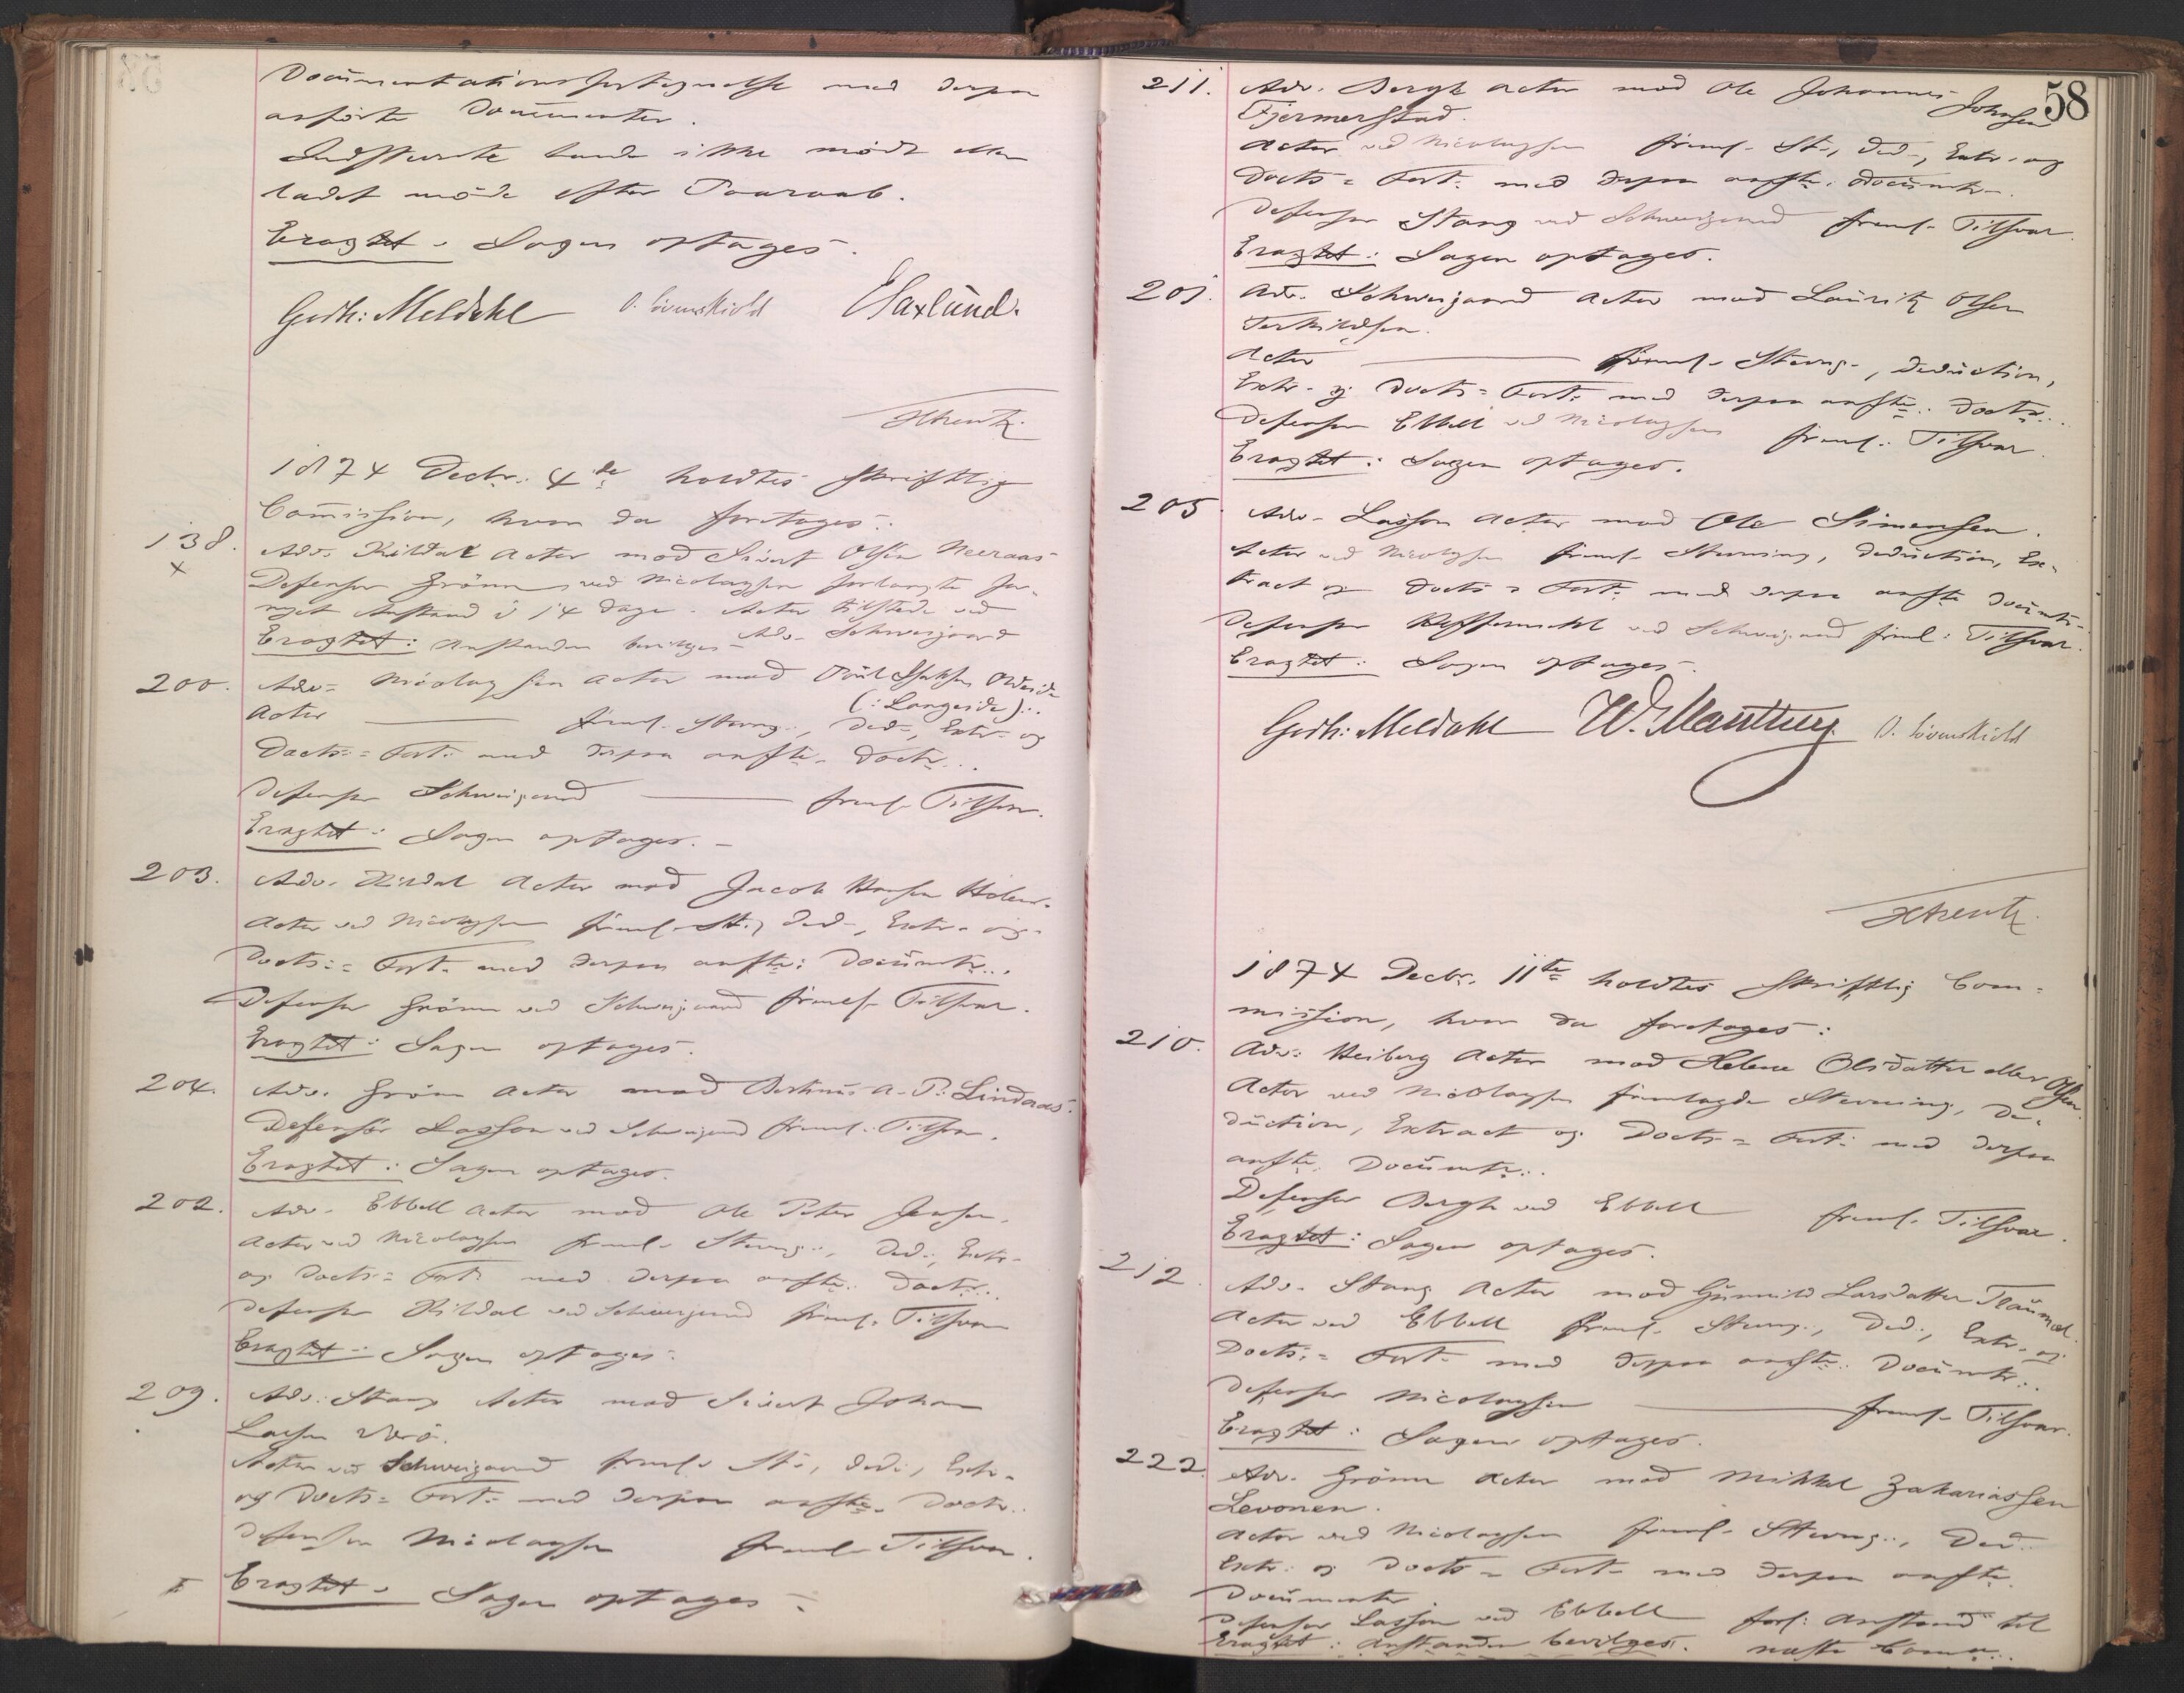 Documentationsfortegnelse med derpaa
anførte Documenter.
Indstevnte havde ikke mødt eller
ladet møde efter Paaraab.
Eragtet: Sagen optages.
Gerh: Meldahl O. Løvenskiold E Saxlund.
1874 Decbr. 4de holdtes skriftlig
Commission, hvor da foretoges:
138.
x
Adv. Kildal Actor mod Sivert Olsen Neeraas
Defensor Grönn ved Nicolaysen forlangte for-
nyet Anstand i 14 Dage. Actor tilstede ved
Adv. Schweigaard
Eragtet: Anstanden bevilges
200. Adv. Nicolaysen Actor mod Poul
(: Langeide):
Actor — freml. Stevng., Ded., Extr. og
Docts.= Fort. med derpaa anfte. Docte.
Defensor Schweigaard — freml. Tilsvar.
Eragtet: Sagen optages. -
203. Adv. Kildal Actor mod Jacob Hansen
Actor ved Nicolaysen freml. St., Ded., Extr. og
Docts.= Fort. med derpaa anfte: Documtr..
Defensor Grönn ved Schweigaard freml. Tilsvar.
Eragtet: Sagen optages.
204. Adv. Grönn Actor mod A. P. Lindaas.
Defensor Lasson ved Schweigaard freml. Tilsvar.
Eragtet: Sagen optages.
202. Adv. Ebbell Actor mod Ole Peter Jensen.
Actor ved Nicolaysen freml. Stevng., Ded., Extr.
og Docts.= Fort. med derpaa anfte. Doctr..
Defensor Kildal ved Schweigaard freml. Tilsvar
Eragtet: Sagen optages.
209. Adv. Stang Actor mod Sivert Johan
Larsen
Actor ved Schweigaard freml. St., Ded., Extr.
og Docts.= Fort. med derpaa anfte. Doctr..
Defensor Nicolaysen freml. Tilsvar.
Eragtet: Sagen optages.
58
211. Adv. Bergh Actor mod Ole Johannes Johnsen
Fjermerstad.
Actor ved Nicolaysen freml. St., Ded., Extr. og
Docts.= Fort. med derpaa anfte. Documtr.
Defensor Stang ved Schweigaard freml. Tilsvar.
Eragtet: Sagen optages.
201. Adv. Schweigaard Actor mod Lauritz Olsen
Terkildsen.
Actor — freml. Stevng., Deduction,
Extr. og Docts.= Fort. med derpaa anfte. Doctr..
Defensor Ebbell ved Nicolaysen freml. Tilsvar.
Eragtet: Sagen optages.
205. Adv. Lasson Actor mod Ole Simensen.
Actor ved Nicolaysen freml. Stevning, Deduction, Ex-
tract og Docts.= Fort. med derpaa anfte Documtr.
Defensor ved Schweigaard freml. Tilsvar.
Eragtet: Sagen optages.
Gerh: Meldahl W. Manthey. O. Løvenskiold
1874 Decbr. 11te holdtes skriftlig Com-
mission, hvor da foretoges:
210. Adv. Heiberg Actor mod Helene Olsdatter eller Olsen.
Actor ved Nicolaysen fremlagde Stevning, De-
duction, Extract og Docts.= Fort. med derpaa
anfte. Documtr..
Defensor Bergh ved Ebbell freml. Tilsvar.
Eragtet: Sagen optages.
212. Adv. Stang Actor mod Gunnild Larsdatter
Actor ved Ebbell freml. Stevng., Ded., Extr. og
Docts.= Fort. med derpaa anfte. Documtr..
Defensor Nicolaysen — freml. Tilsvar.
Eragtet: Sagen optages.
222. Adv. Grönn Actor mod Mikkel Zakariassen
Levonen.
Actor ved Nicolaysen freml. Stevng., Ded.
Extr. og Docts.= Fort. med derpaa anfte.
Documenter
Defensor Lasson ved Ebbell forl. Anstand til
Eragtet: Anstanden bevilges. næste Comm..